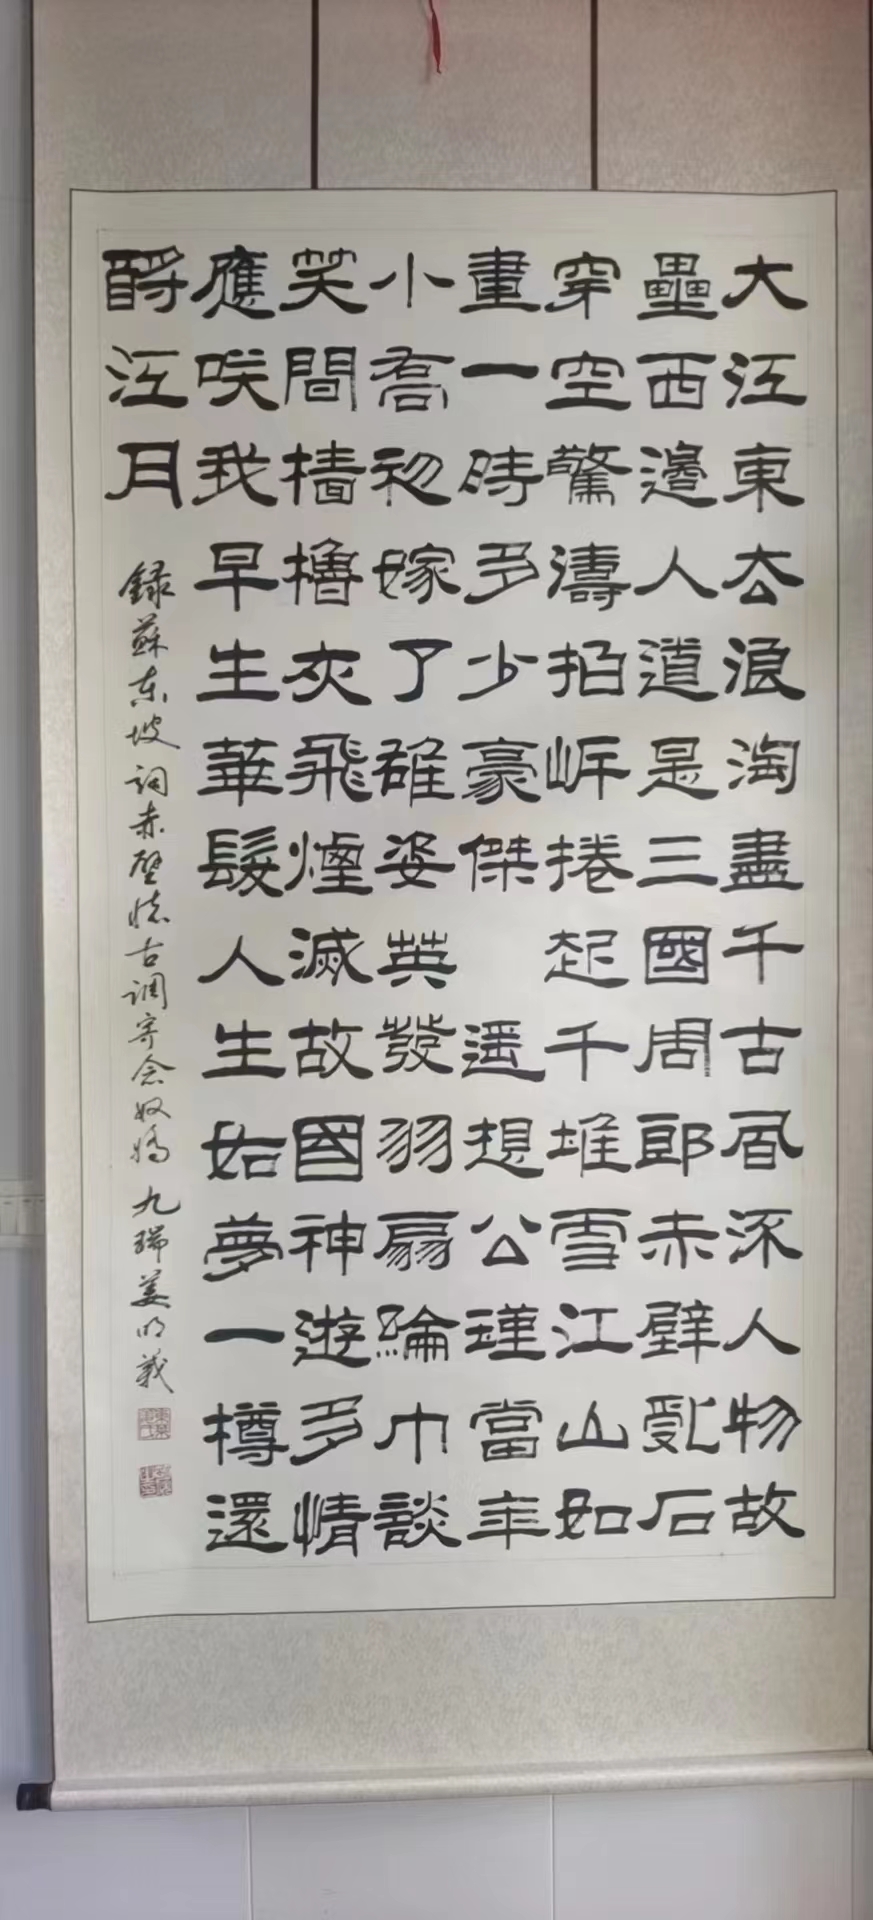 大江東去浪淘盡千古風流人物故
壘西邊人道是三國周郎赤壁亂石
穿空驚濤拍岍捲起千堆雪江山如
畫一時多少豪傑 遥想公瑾當年
小喬初嫁了雄姿英發羽扇綸巾談
笑間檣櫓灰飛煙滅故國神遊多情
應咲我早生華髮人生如夢一樽還
酹江月
録蘇東坡詞赤壁懷古調寄念奴嬌 九瑞姜明義